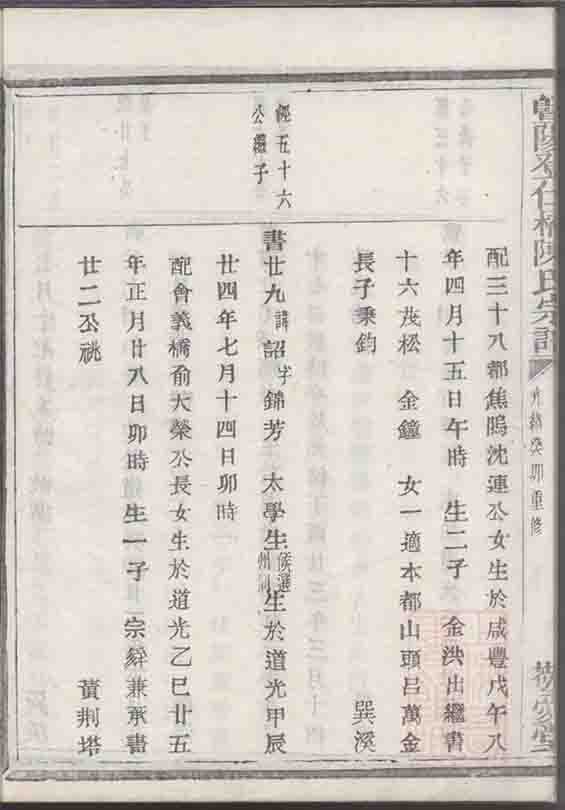 暨陽金紫橋陳氏宗譜
光緒癸卯重修
配三十八都焦鴫沈連公女生於咸豐戊午八
年四月十五日午時 生二子 金洪出繼書
十六茂松 金鐘 女一適本都山頭呂萬金
長子秉鈞 巽溪
經五十六
公繼子
書廿九諱詔字錦芳 太學生候選州同生於道光甲辰
廿四年七月十四日卯時
配會義橋俞大榮公長女生於道光乙巳廿五
年正月廿八日卯時 生一子 宗舜兼承書
廿二公祧 黃荆塔